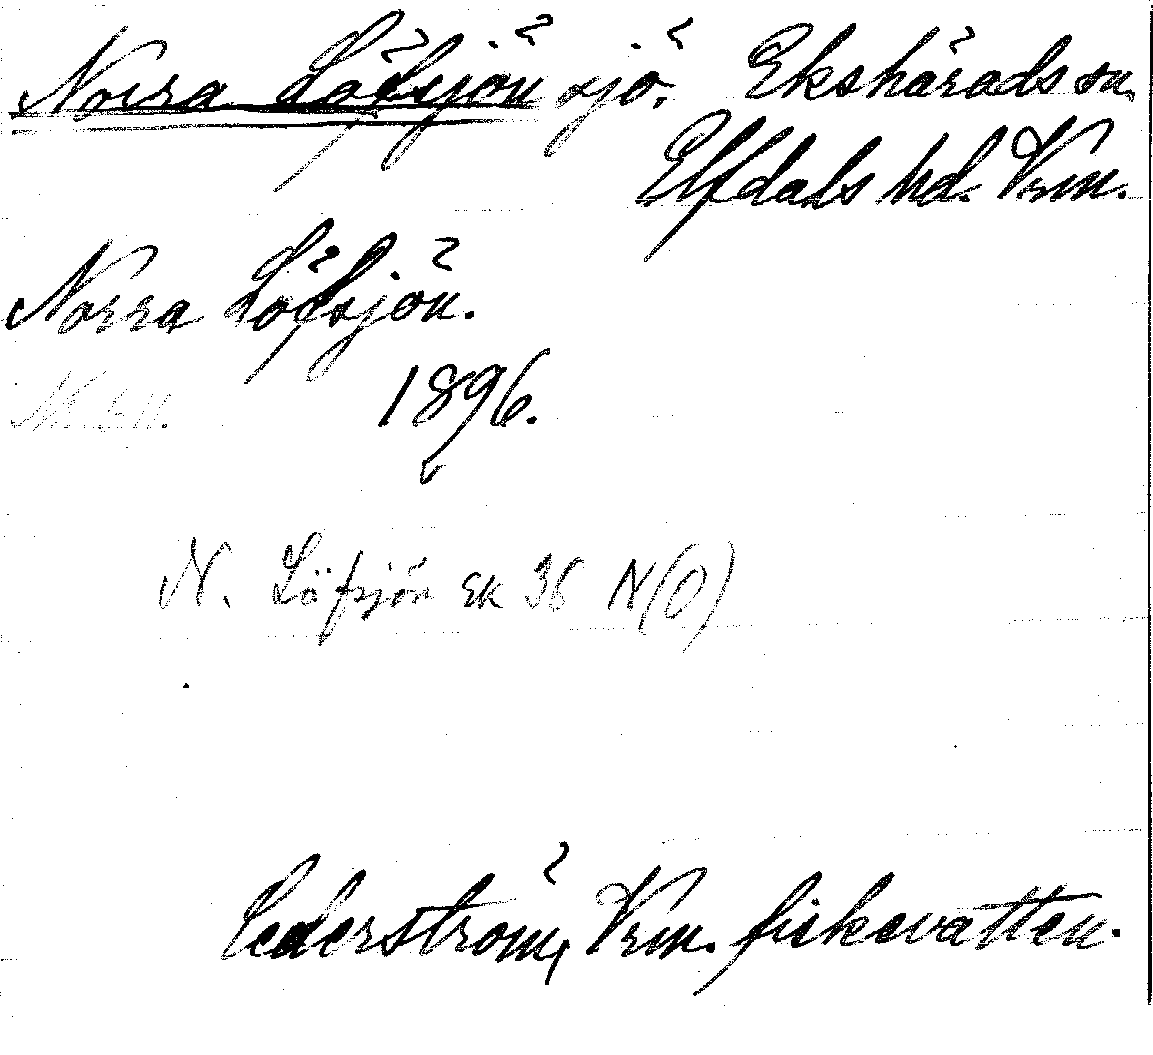 Norra Löfsjön sjö. Ekshärads sn,
Elfdals hd. Vrm.
Norra Löfsjön.
1896.
N. Löfsjön Ek 36 N(O)
Cederström, Vrm. fiskevatten.